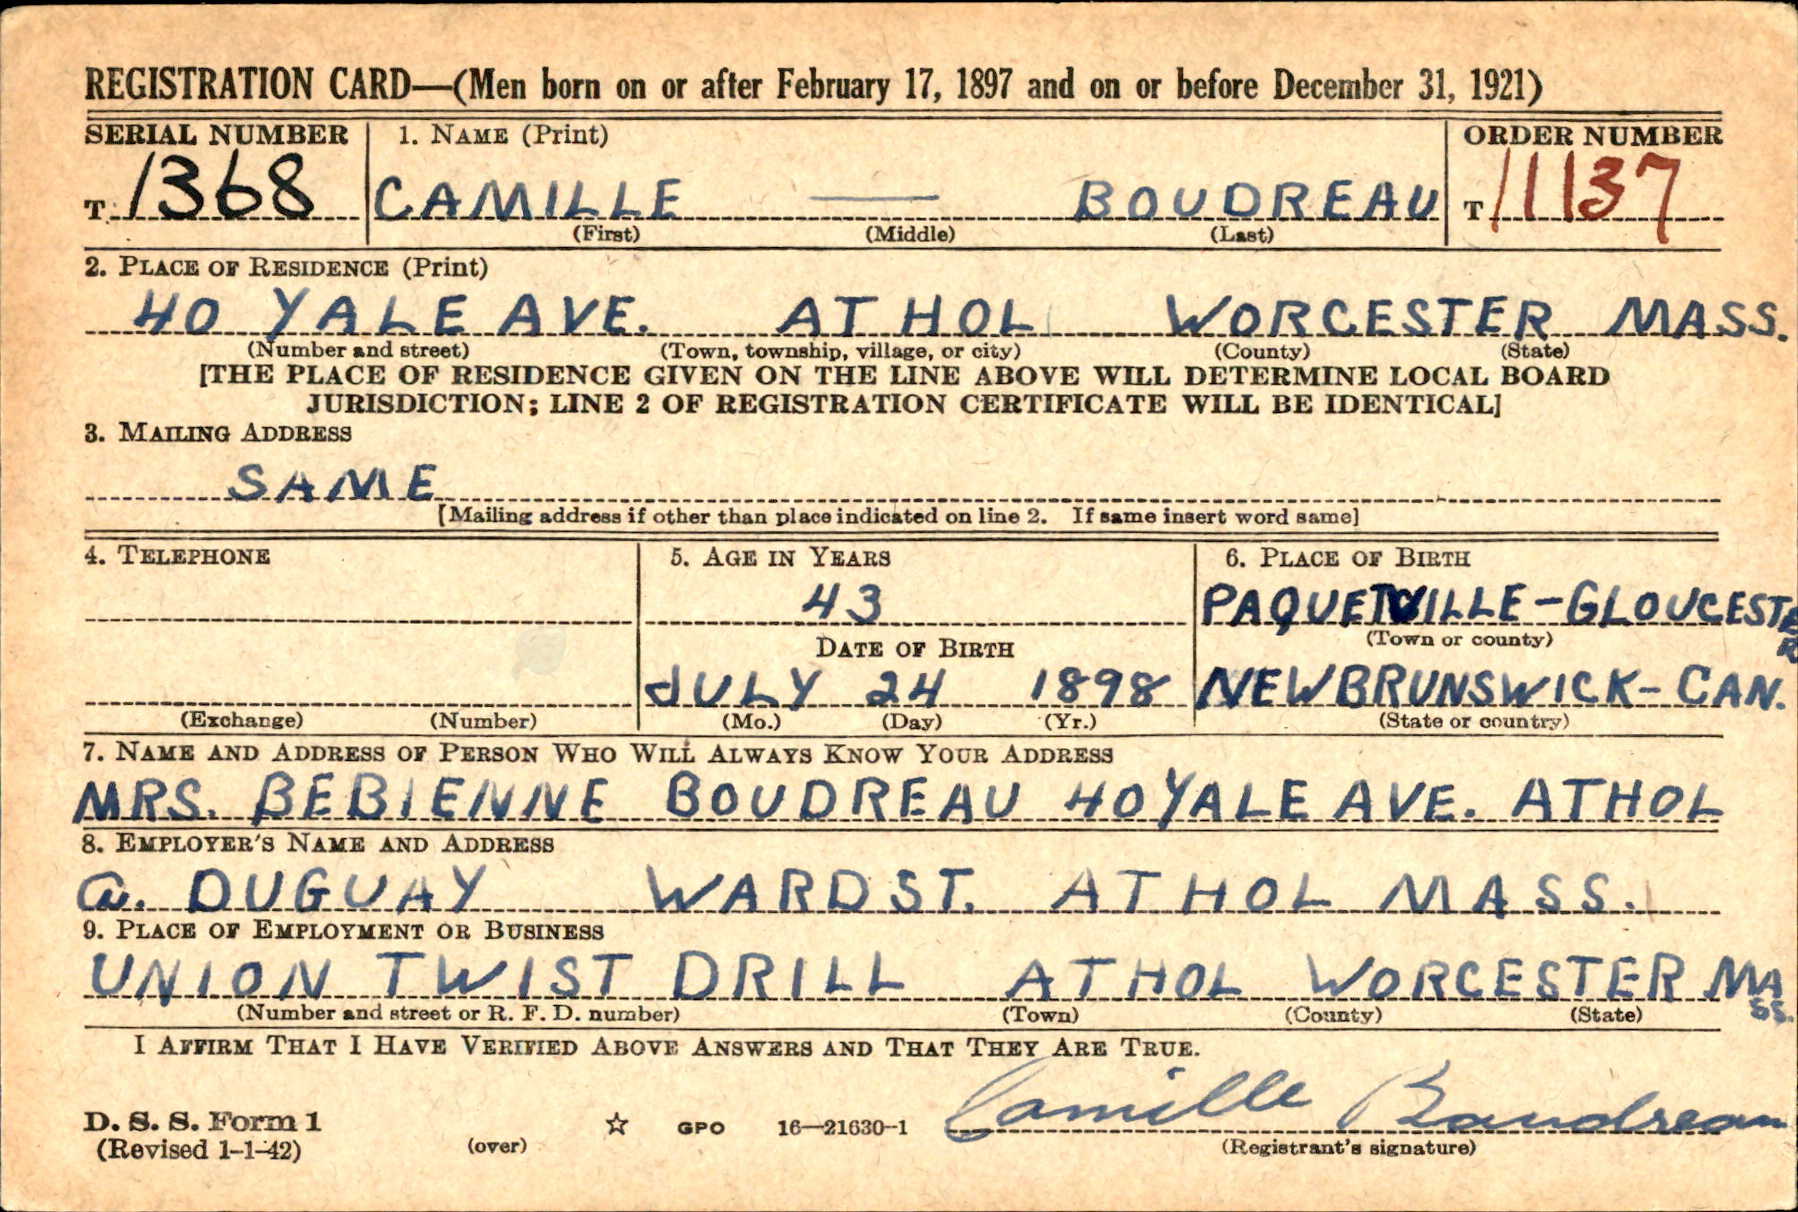 REGISTRATION CARD—(Men born on or after February 17, 1897 and on or before December 31, 1921)
SERIAL NUMBER 1. NAME (Print) ORDER NUMBER
T 1368 CAMILLE — BOUDREAU T 11137
(First) (Middle) (Last)
2. PLACE OF RESIDENCE (Print)
40 YALE AVE. ATHOL WORCESTER MASS.
(Number and street) (Town, township, village, or city) (County) (State)
[THE PLACE OF RESIDENCE GIVEN ON THE LINE ABOVE WILL DETERMINE LOCAL BOARD
JURISDICTION; LINE 2 OF REGISTRATION CERTIFICATE WILL BE IDENTICAL]
3. MAILING ADDRESS
SAME
[Mailing address if other than place indicated on line 2. If same insert word same]
4. TELEPHONE 5. AGE IN YEARS 6. PLACE OF BIRTH
43 PAQUETVILLE-GLOUCESTER
DATE OF BIRTH (Town or county)
JULY 24 1898 NEW BRUNSWICK-CAN.
(Exchange) (Number) (Mo.) (Day) (Yr.) (State or country)
7. NAME AND ADDRESS OF PERSON WHO WILL ALWAYS KNOW YOUR ADDRESS
MRS. BEBIENNE BOUDREAU 40 YALE AVE. ATHOL
8. EMPLOYER'S NAME AND ADDRESS
A. DUGUAY WARD ST. ATHOL MASS.
9. PLACE OF EMPLOYMENT OR BUSINESS
UNION TWIST DRILL ATHOL WORCESTER MASS.
(Number and street or R. F. D. number) (Town) (County) (State)
I AFFIRM THAT I HAVE VERIFIED ABOVE ANSWERS AND THAT THEY ARE TRUE.
Camille Boudreau
D. S. S. Form 1
(Revised 1-1-42) (over) ☆ GPO 16—21630-1 (Registrant's signature)